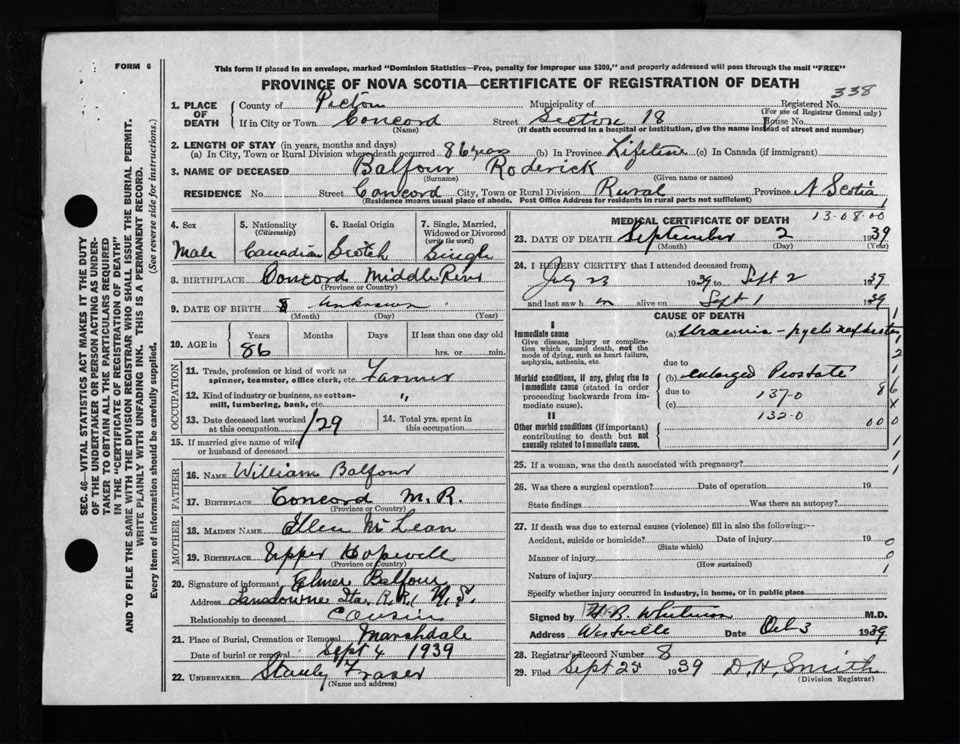 FORM 6
This form if placed in an envelope, marked "Dominion Statistics—Free, penalty for improper use $300," and properly addressed will pass through the mail "FREE"
PROVINCE OF NOVA SCOTIA—CERTIFICATE OF REGISTRATION OF DEATH
338
1. PLACE OF DEATH County of Pictou Municipality of Registered No.
(For use of Registrar General only)
If in City or Town Concord Street Section 18 House No.
(Name) (If death occurred in a hospital or institution, give the name instead of street and number)
2. LENGTH OF STAY (in years, months and days)
(a) In City, Town or Rural Division where death occurred 86 years (b) In Province Lifetime (c) In Canada (if immigrant)
3. NAME OF DECEASED Balfour Roderick
(Surname) (Given name or names)
RESIDENCE No. Street Concord City, Town or Rural Division Rural Province N Scotia
(Residence means usual place of abode. Post Office Address for residents in rural parts not sufficient)
SEC. 46—VITAL STATISTICS ACT MAKES IT THE DUTY
OF THE UNDERTAKER OR PERSON ACTING AS UNDER-
TAKER TO OBTAIN ALL THE PARTICULARS REQUIRED
IN THE "CERTIFICATE OF REGISTRATION OF DEATH"
AND TO FILE THE SAME WITH THE DIVISION REGISTRAR WHO SHALL ISSUE THE BURIAL PERMIT.
WRITE PLAINLY WITH UNFADING INK. THIS IS A PERMANENT RECORD.
Every item of information should be carefully supplied. (See reverse side for instructions.)
4. Sex Male
5. Nationality (Citizenship) Canadian
6. Racial Origin Scotch
7. Single, Married, Widowed or Divorced (write the word) Single
8. BIRTHPLACE Concord Middle River
(Province or Country)
9. DATE OF BIRTH Unknown
(Month) (Day) (Year)
10. AGE in Years Months Days If less than one day old
86 hrs. or min.
OCCUPATION
11. Trade, profession or kind of work as spinner, teamster, office clerk, etc. Farmer
12. Kind of industry or business, as cotton-mill, lumbering, bank, etc. "
13. Date deceased last worked at this occupation 1/29
14. Total yrs. spent in this occupation
15. If married give name of wife or husband of deceased
FATHER
16. NAME William Balfour
17. BIRTHPLACE Concord M.R.
(Province or Country)
MOTHER
18. MAIDEN NAME Ellen McLean
19. BIRTHPLACE Upper Hopewell
(Province or Country)
20. Signature of informant Elmer Balfour
Address Lansdowne Sta. R.R.1 N.S.
Relationship to deceased Cousin
21. Place of Burial, Cremation or Removal Marshdale
Date of burial or removal Sept 4 1939
22. UNDERTAKER Stanley Fraser
(Name and address)
MEDICAL CERTIFICATE OF DEATH
13-08-00
23. DATE OF DEATH September 2 1939
(Month) (Day) (Year)
24. I HEREBY CERTIFY that I attended deceased from
July 23 1939 to Sept 2 1939
and last saw h im alive on Sept 1 1939
CAUSE OF DEATH
I
Immediate cause (a) Uraemia - pyelo nephritis
Give disease, injury or complication which caused death, not the mode of dying, such as heart failure, asphyxia, asthenia, etc.
due to
Morbid conditions, if any, giving rise to immediate cause (stated in order proceeding backwards from immediate cause).
(b) enlarged Prostate
due to 137-0
(c)
II
132-0
Other morbid conditions (if important) contributing to death but not causally related to immediate cause.
25. If a woman, was the death associated with pregnancy?
26. Was there a surgical operation? Date of operation 19
State findings Was there an autopsy?
27. If death was due to external causes (violence) fill in also the following:—
Accident, suicide or homicide? Date of injury 19
(State which)
Manner of injury
(How sustained)
Nature of injury
Specify whether injury occurred in industry, in home, or in public place
Signed by M.D.
Address Westville Date Oct 3 1939
28. Registrar's Record Number 8
29. Filed Sept 25 1939 D. H. Smith
(Division Registrar)